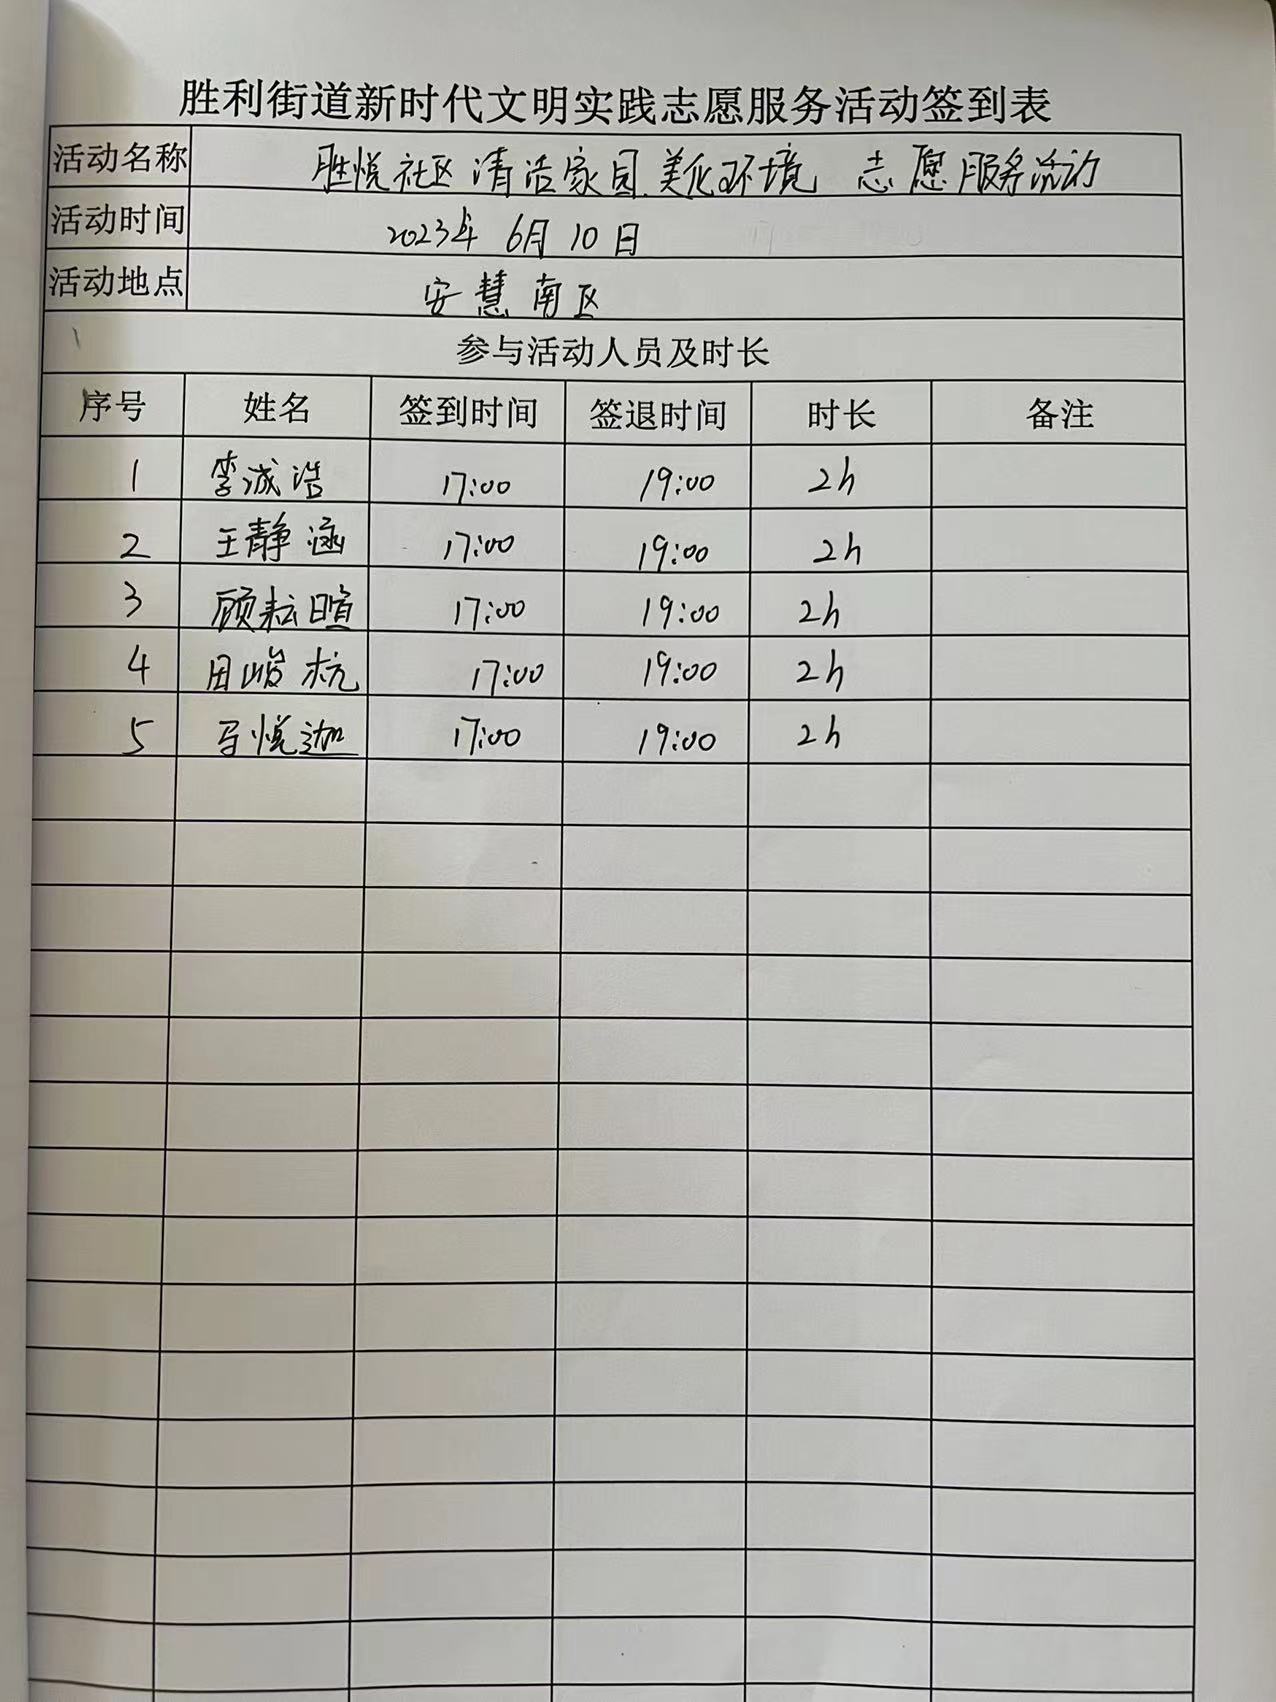 胜利街道新时代文明实践志愿服务活动签到表
活动名称 胜悦社区清洁家园美化环境 志愿服务活动
活动时间 2023年 6月 10日
活动地点 安慧南区
参与活动人员及时长
序号 姓名 签到时间 签退时间 时长 备注
1 李诚浩 17:00 19:00 2h
2 王静涵 17:00 19:00 2h
3 顾耘暄 17:00 19:00 2h
4 田峻杭 17:00 19:00 2h
5 马悦迦 17:00 19:00 2h